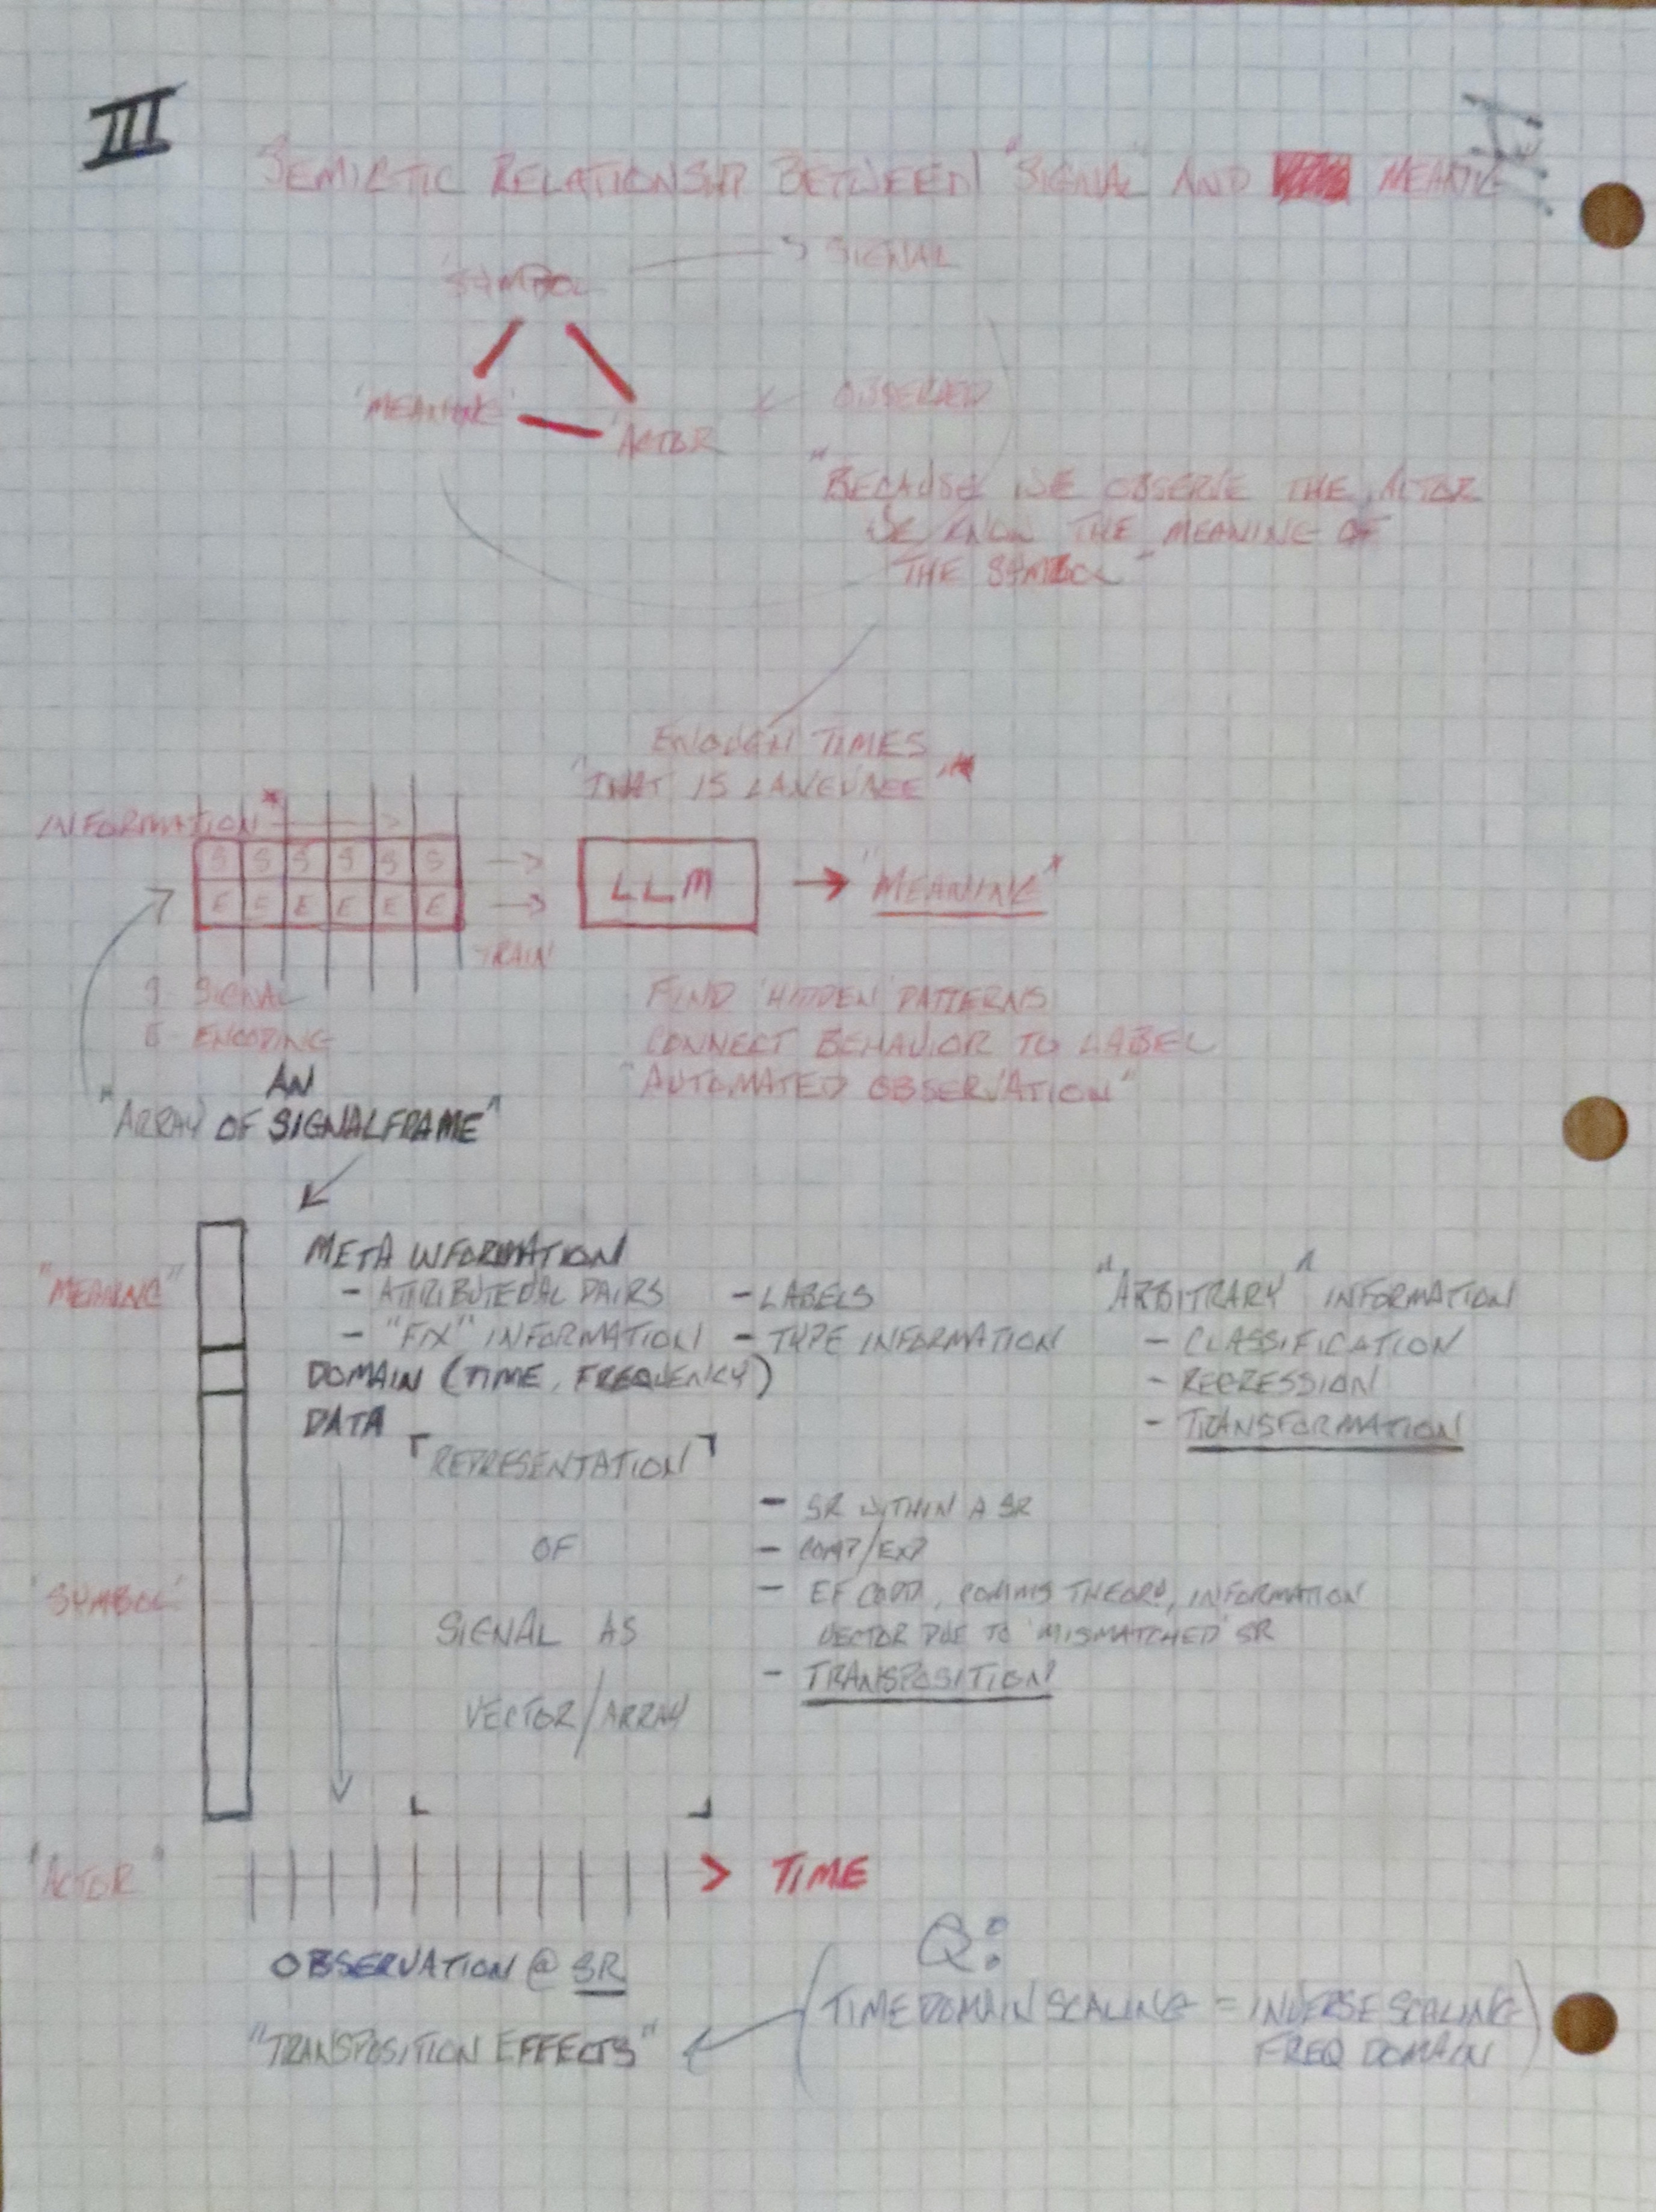 III
SEMIOTIC RELATIONSHIP BETWEEN "SIGNAL" AND MEANING
'SYMBOL' → SIGNAL
'MEANING' 'ACTOR' ← OBSERVED
"BECAUSE WE OBSERVE THE ACTOR
WE KNOW THE MEANING OF
THE SYMBOL"
ENOUGH TIMES
"THAT IS LANGUAGE"*
INFORMATION* →
S S S S S S →
E E E E E E →
LLM → "MEANING"*
TRAIN
S SIGNAL
E ENCODING
FIND 'HIDDEN' PATTERNS
CONNECT BEHAVIOR TO LABEL
"AUTOMATED OBSERVATION"
AN
"ARRAY OF SIGNALFRAME"
"MEANING"
META INFORMATION
- ATTRIBUTE VAL PAIRS - LABELS
- "FIX" INFORMATION - TYPE INFORMATION
DOMAIN (TIME, FREQUENCY)
DATA
"ARBITRARY" INFORMATION
- CLASSIFICATION
- REGRESSION
- TRANSFORMATION
'SYMBOL'
REPRESENTATION
OF
SIGNAL AS
VECTOR/ARRAY
- SR WITHIN A SR
- COMP/EXP
- EF CODD, COMMS THEORY, INFORMATION
VECTOR DUE TO 'MISMATCHED' SR
- TRANSPOSITION
"ACTOR"
> TIME
OBSERVATION @ SR
"TRANSPOSITION EFFECTS"
Q:
(TIME DOMAIN SCALING = INVERSE SCALING
FREQ DOMAIN)